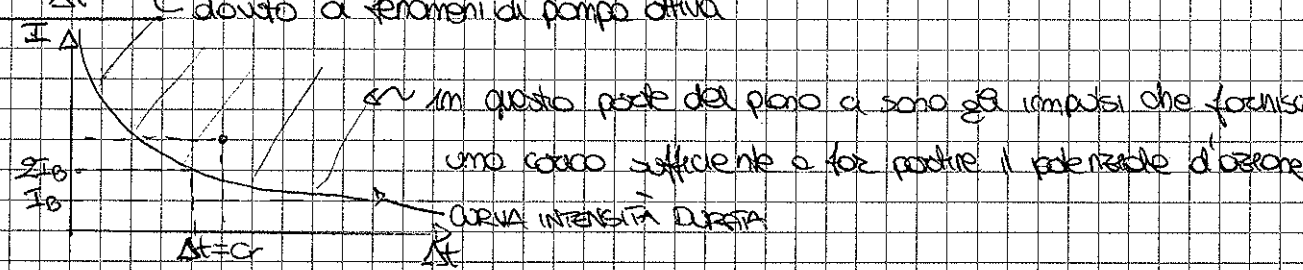 dovuto a fenomeni di pompa attiva
I
in questa parte del piano ci sono gli impulsi che fornisco
una carica sufficiente a far partire il potenziale d'azione
2I₀
I₀
CURVA INTENSITÀ DURATA
Δt=Cr
Δt